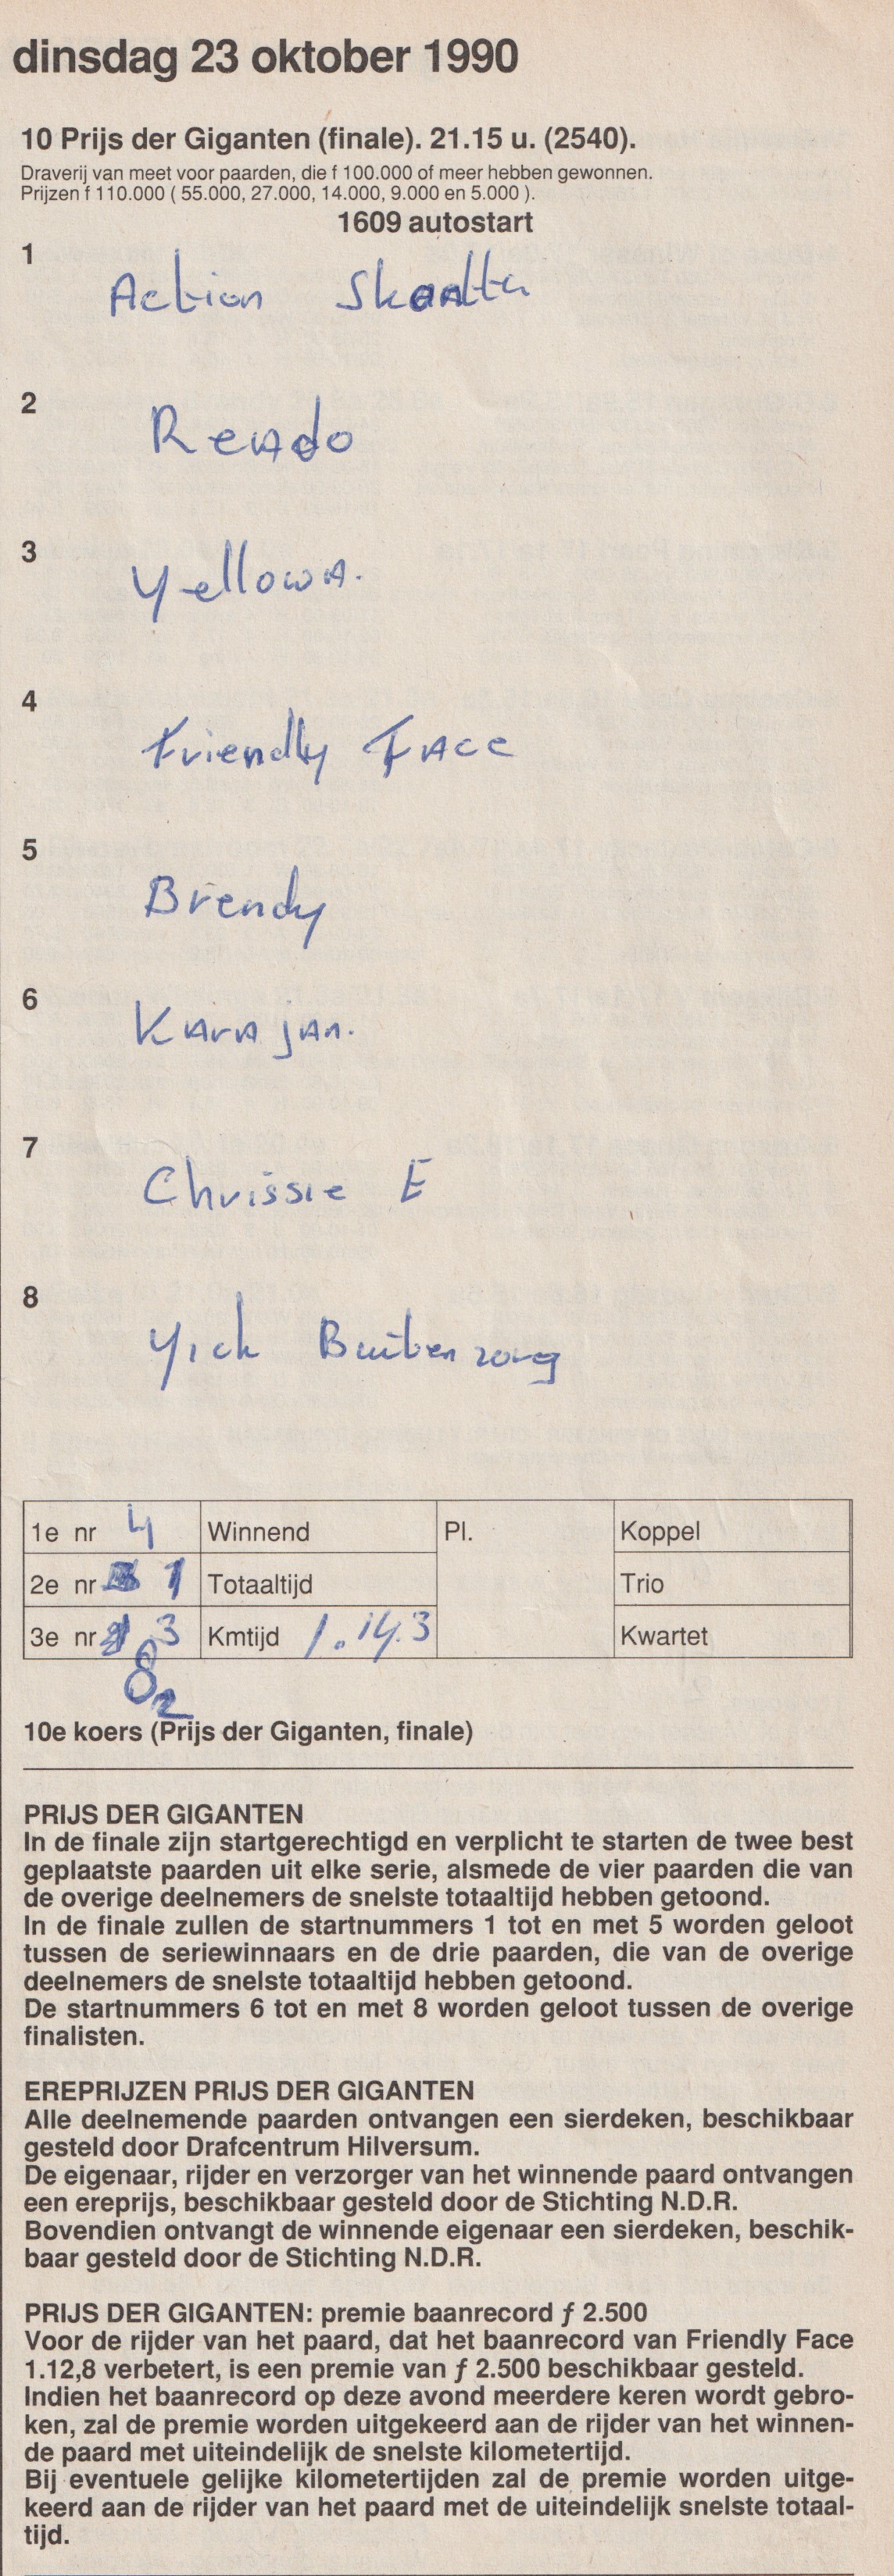 dinsdag 23 oktober 1990
10 Prijs der Giganten (finale). 21.15 u. (2540).
Draverij van meet voor paarden, die f 100.000 of meer hebben gewonnen.
Prijzen f 110.000 ( 55.000, 27.000, 14.000, 9.000 en 5.000 ).
1609 autostart
1
Action
2
Rendo
3
Yellow A.
4
Friendly Face
5
Brendy
6
Karajan.
7
Chrissie E
8
Yick Buitenzorg
1e nr 4 Winnend Pl. Koppel
2e nr 1 Totaaltijd Trio
3e nr 3 Kmtijd 1.14.3 Kwartet
8 2
10e koers (Prijs der Giganten, finale)
PRIJS DER GIGANTEN
In de finale zijn startgerechtigd en verplicht te starten de twee best
geplaatste paarden uit elke serie, alsmede de vier paarden die van
de overige deelnemers de snelste totaaltijd hebben getoond.
In de finale zullen de startnummers 1 tot en met 5 worden geloot
tussen de seriewinnaars en de drie paarden, die van de overige
deelnemers de snelste totaaltijd hebben getoond.
De startnummers 6 tot en met 8 worden geloot tussen de overige
finalisten.
EREPRIJZEN PRIJS DER GIGANTEN
Alle deelnemende paarden ontvangen een sierdeken, beschikbaar
gesteld door Drafcentrum Hilversum.
De eigenaar, rijder en verzorger van het winnende paard ontvangen
een ereprijs, beschikbaar gesteld door de Stichting N.D.R.
Bovendien ontvangt de winnende eigenaar een sierdeken, beschik-
baar gesteld door de Stichting N.D.R.
PRIJS DER GIGANTEN: premie baanrecord ƒ 2.500
Voor de rijder van het paard, dat het baanrecord van Friendly Face
1.12,8 verbetert, is een premie van ƒ 2.500 beschikbaar gesteld.
Indien het baanrecord op deze avond meerdere keren wordt gebro-
ken, zal de premie worden uitgekeerd aan de rijder van het winnen-
de paard met uiteindelijk de snelste kilometertijd.
Bij eventuele gelijke kilometertijden zal de premie worden uitge-
keerd aan de rijder van het paard met de uiteindelijk snelste totaal-
tijd.